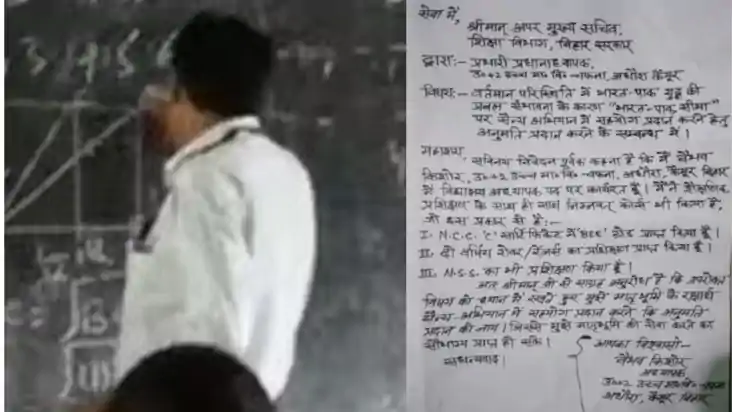 3 4 5 6
सेवा में,
श्रीमान् अपर मुख्य सचिव,
शिक्षा विभाग, बिहार सरकार
द्वारा:- प्रभारी प्रधानाध्यापक,
अधौरा कैमूर
विषय:- वर्तमान परिस्थिति में भारत-पाक युद्ध की
प्रबल संभावना के कारण "भारत-पाक सीमा"
पर सैन्य अभियान में सहयोग प्रदान करने हेतु
अनुमति प्रदान करने के सम्बन्ध में।
महाशय,
सविनय निवेदन पूर्वक कहना है कि मैं वैभव
किशोर, उ०+2 उच्च मा० वि०-बफना, अधौरा, कैमूर, बिहार
में विद्यालय अध्यापक पद पर कार्यरत हूँ। मैंने शैक्षणिक
प्रशिक्षण के साथ ही साथ निम्नवत् कोर्स भी किया है,
जो इस प्रकार से है:-
I. N.C.C. 'C' सर्टिफिकेट में ग्रेड प्राप्त किया हूँ।
II. दो वर्षीय रोवर/रेंजर्स का प्रशिक्षण प्राप्त किया हूँ।
III. N.S.S. का भी प्रशिक्षण किया हूँ।
अतः श्रीमान् जी से सादर अनुरोध है कि उपरोक्त
विषय को ध्यान में रखते हुए मुझे मातृभूमि के रक्षार्थ
सैन्य अभियान में सहयोग प्रदान करने कि अनुमति
प्रदान की जाय। जिससे मुझे मातृभूमि की सेवा करने का
सौभाग्य प्राप्त हो सके।
सधन्यवाद।
आपका विश्वासी-
वैभव किशोर
अध्यापक
उ०+2 उच्च मा० वि०-बफना
अधौरा, कैमूर, बिहार